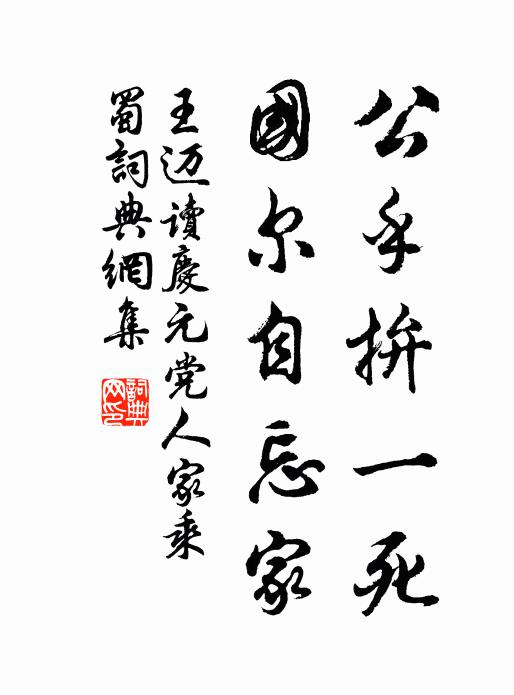 公乎拚一死
國尔自忘家
王迈讀慶元党人家乘
蜀詞典網集
詞典网印